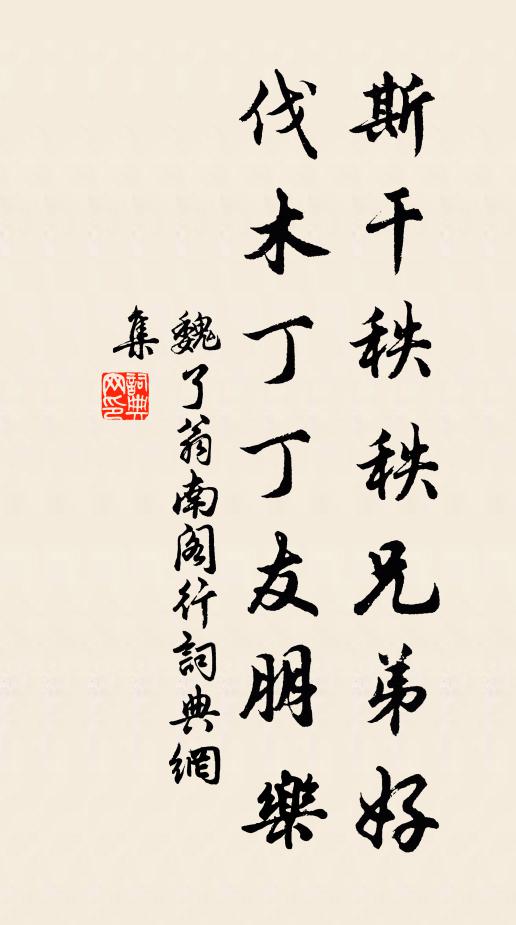 斯干秩秩兄弟好
伐木丁丁友朋樂
魏了翁南閣行詞典網
集
詞典
网印